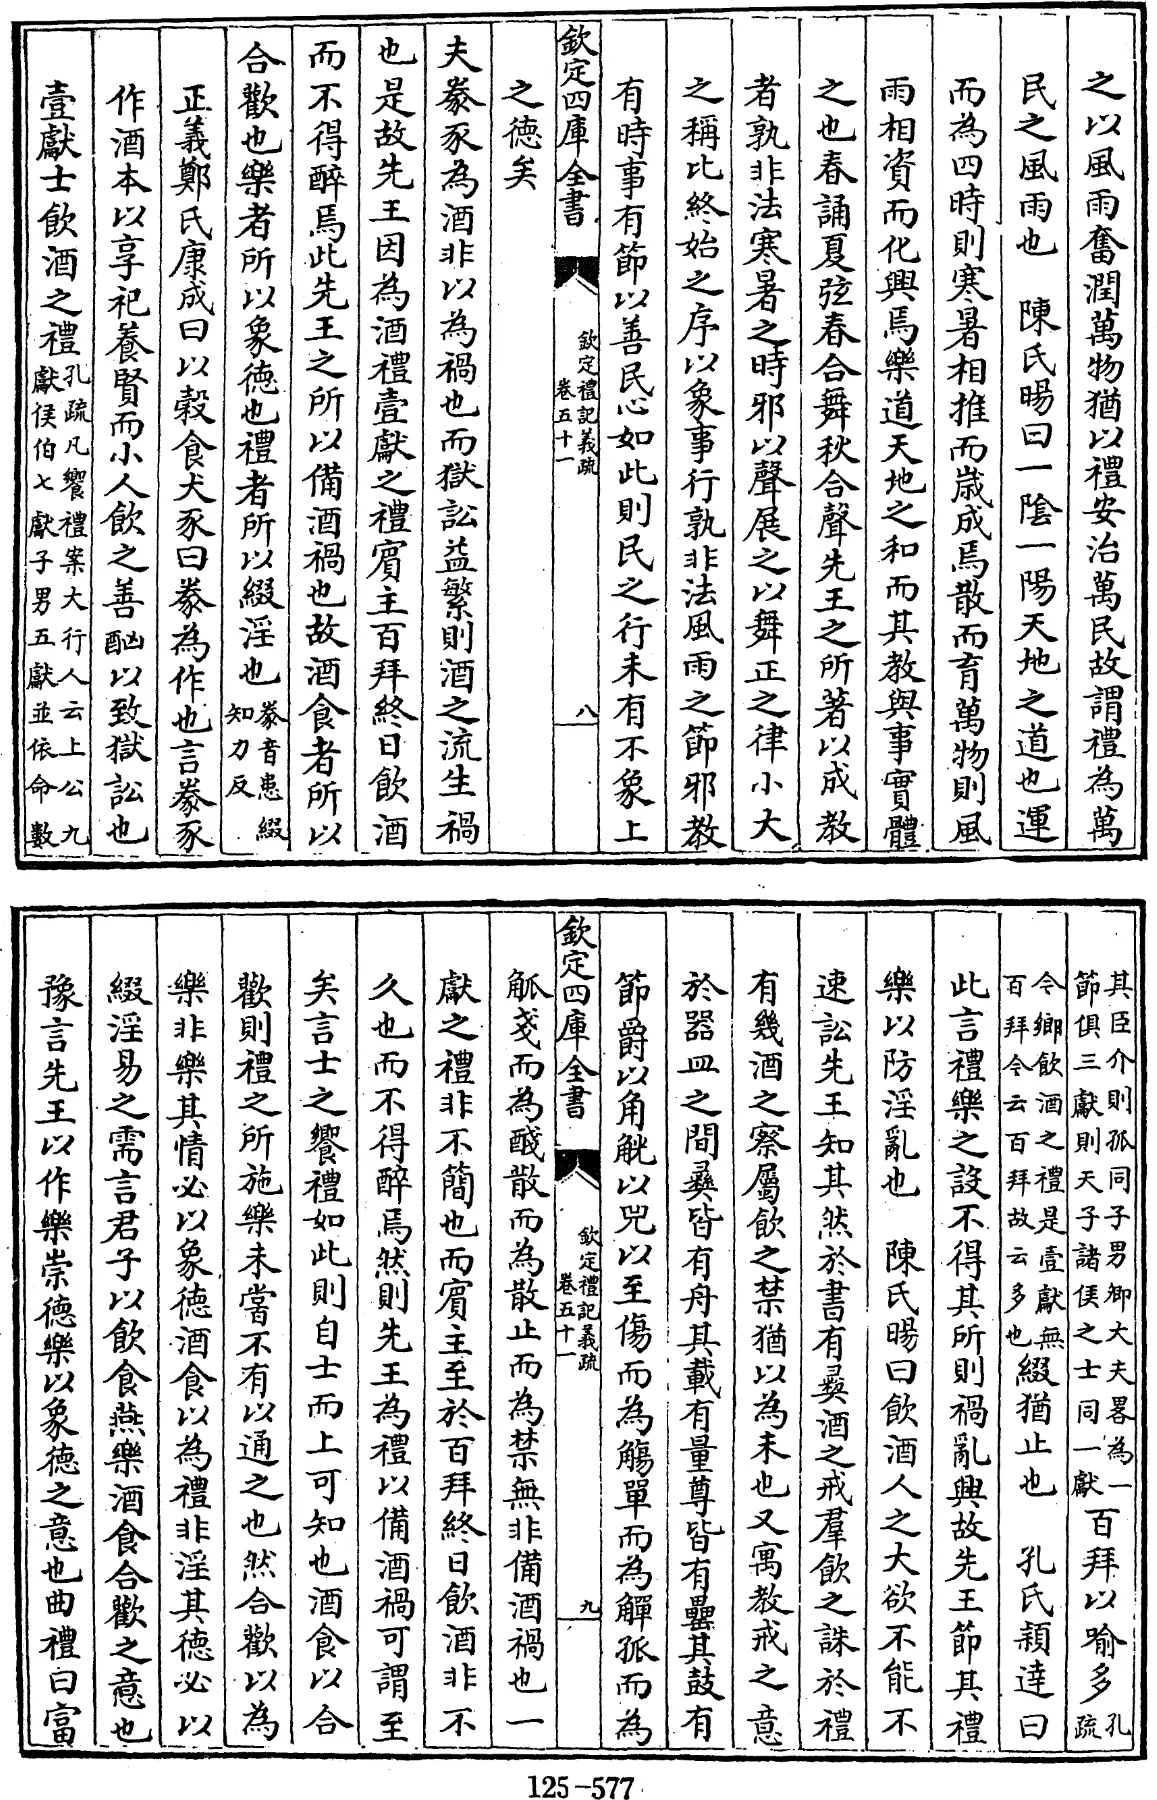 之以風雨奮潤萬物猶以禮安治萬民故謂禮為萬
民之風雨也　陳氏暘曰一陰一陽天地之道也運
而為四時則寒暑相推而歳成焉散而育萬物則風
雨相資而化興焉樂道天地之和而其教與事實體
之也春誦夏弦春合舞秋合聲先王之所著以成教
者孰非法寒暑之時邪以聲展之以舞正之律小大
之稱比終始之序以象事行孰非法風雨之節邪教
有時事有節以善民心如此則民之行未有不象上
欽定四庫全書
欽定禮記義疏
卷五十一
八
之徳矣
夫豢豕為酒非以為禍也而獄訟益繁則酒之流生禍
也是故先王因為酒禮壹獻之禮賓主百拜終日飲酒
而不得醉焉此先王之所以備酒禍也故酒食者所以
合歡也樂者所以象徳也禮者所以綴淫也
豢音患綴
知力反
正義鄭氏康成曰以穀食犬豕曰豢為作也言豢豕
作酒本以享祀養賢而小人飲之善酗以致獄訟也
壹獻士飲酒之禮
孔疏凡饗禮案大行人云上公九
獻侯伯七獻子男五獻並依命數
其臣介則孤同子男卿大夫畧為一
節俱三獻則天子諸侯之士同一獻
百拜以喻多
孔
疏
令鄉飲酒之禮是壹獻無
百拜今云百拜故云多也
綴猶止也　孔氏頴達曰
此言禮樂之設不得其所則禍亂興故先王節其禮
樂以防淫亂也　陳氏暘曰飲酒人之大欲不能不
速訟先王知其然於書有彛酒之戒羣飲之誅於禮
有幾酒之察屬飲之禁猶以為未也又寓教戒之意
於器皿之間彛皆有舟其載有量尊皆有罍其鼓有
節爵以角觥以兕以至傷而為觴單而為觶孤而為
欽定四庫全書
欽定禮記義疏
卷五十一
九
觚戔而為醆散而為散止而為禁無非備酒禍也一
獻之禮非不簡也而賓主至於百拜終日飲酒非不
久也而不得醉焉然則先王為禮以備酒禍可謂至
矣言士之饗禮如此則自士而上可知也酒食以合
歡則禮之所施樂未嘗不有以通之也然合歡以為
樂非樂其情必以象徳酒食以為禮非淫其徳必以
綴淫易之需言君子以飲食燕樂酒食合歡之意也
豫言先王以作樂崇徳樂以象徳之意也曲禮曰富
125-577